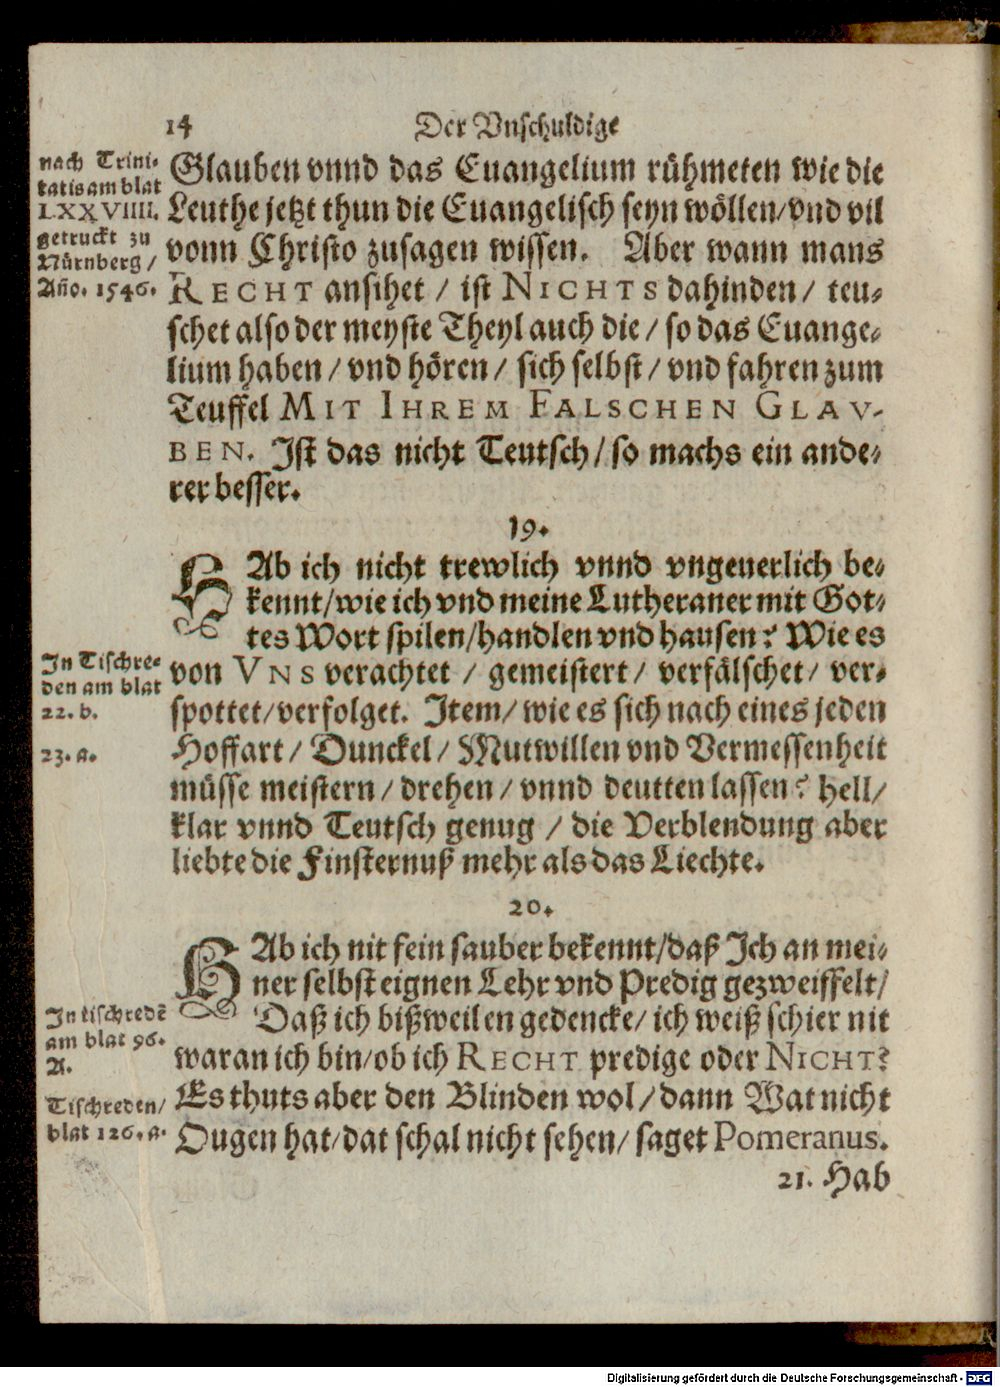 14 Der Vnschuldige
nach Trini-
tatis am blat
LXXVIIII.
getruckt zu
Nürnberg /
Año. 1546.
Glauben vnnd das Euangelium rühmeten wie die
Leuthe jetzt thun die Euangelisch seyn wöllen/vnd vil
vonn Christo zusagen wissen. Aber wann mans
RECHT ansihet / ist NICHTS dahinden/ teu-
schet also der meyste Theyl auch die / so das Euange-
lium haben / vnd hören / sich selbst / vnd fahren zum
Teuffel MIT IHREM FALSCHEN GLAV-
BEN. Ist das nicht Teutsch / so machs ein ande-
rer besser.
19.
HAb ich nicht trewlich vnnd vngeuerlich be-
kennt/wie ich vnd meine Lutheraner mit Got-
tes Wort spilen/handlen vnd hausen? Wie es
von VNS verachtet / gemeistert / verfälschet / ver-
spottet/verfolget. Item/ wie es sich nach eines jeden
Hoffart / Dunckel / Mutwillen vnd Vermessenheit
müsse meistern / drehen / vnnd deutten lassen? hell/
klar vnnd Teutsch genug / die Verblendung aber
liebte die Finsternuß mehr als das Liechte.
In Tischre-
den am blat
22. b.
23. a.
20.
HAb ich nit fein sauber bekennt/daß Ich an mei-
ner selbst eignen Lehr vnd Predig gezweiffelt/
Daß ich bißweilen gedencke/ ich weiß schier nit
waran ich bin/ob ich RECHT predige oder NICHT?
Es thuts aber den Blinden wol / dann Wat nicht
Ougen hat/dat schal nicht sehen/ saget Pomeranus.
In tischredē
am blat 96.
A.
Tischreden/
blat 126. a.
21. Hab
Digitalisierung gefördert durch die Deutsche Forschungsgemeinschaft - DFG